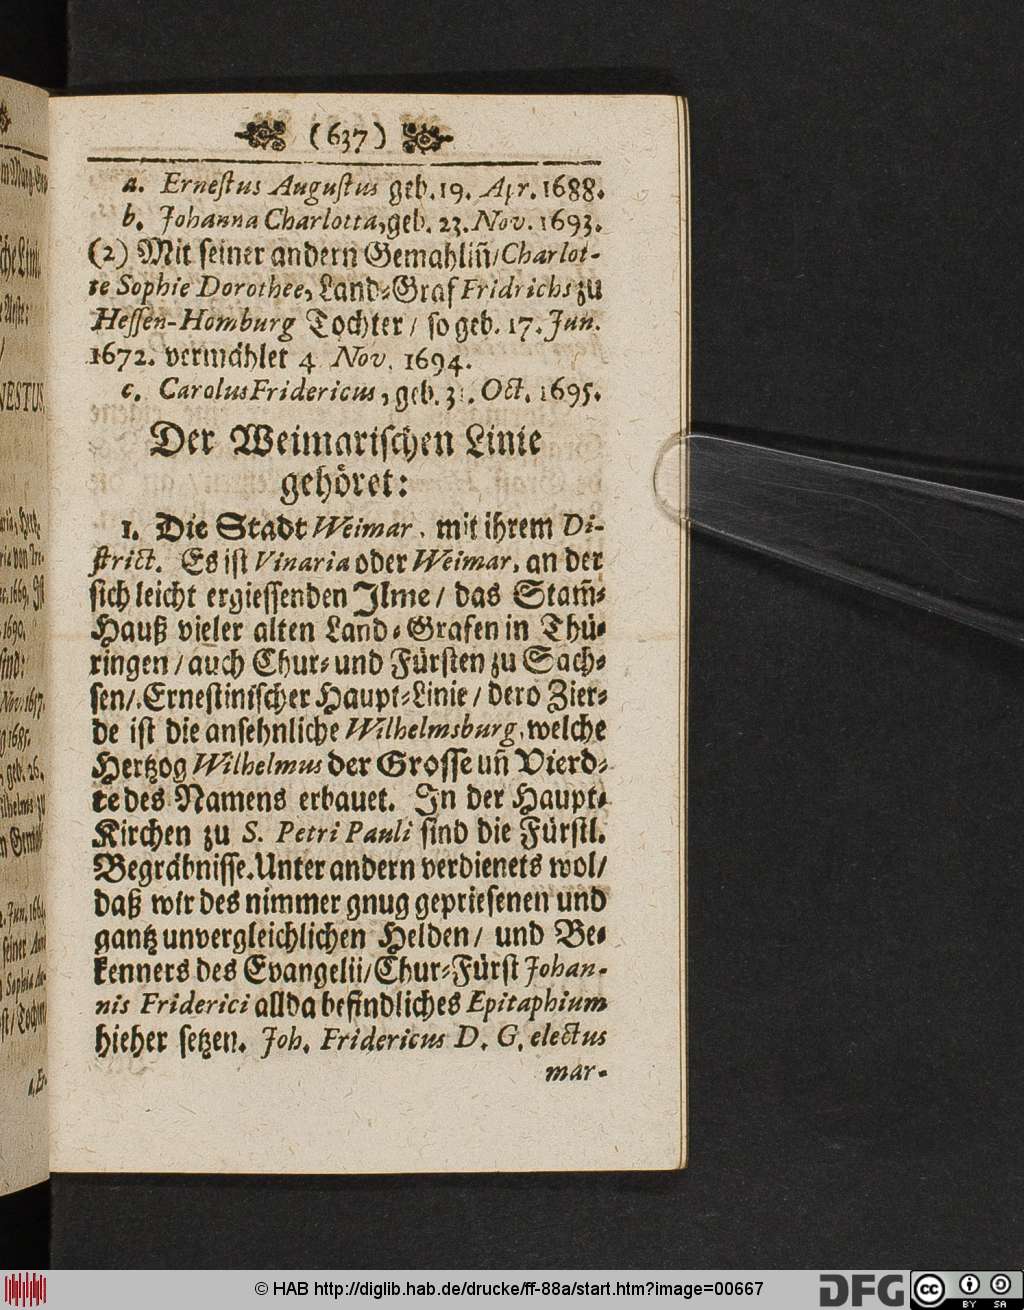 (637)
a. Ernestus Augustus geb. 19. Apr. 1688.
b. Johanna Charlotta, geb. 23. Nov. 1693.
(2) Mit seiner andern Gemahliñ/ Charlot-
te Sophie Dorothee, Land-Graf Fridrichs zu
Hessen-Homburg Tochter / so geb. 17. Jun.
1672. vermählet 4 Nov. 1694.
c. Carolus Fridericus, geb. 31. Oct. 1695.
Der Weimarischen Linie
gehöret:
1. Die Stadt Weimar, mit ihrem Di-
strict. Es ist Vinaria oder Weimar, an der
sich leicht ergiessenden Ilme / das Stam̃-
Hauß vieler alten Land-Grafen in Thü-
ringen / auch Chur- und Fürsten zu Sach-
sen/ Ernestinischer Haupt-Linie / dero Zier-
de ist die ansehnliche Wilhelmsburg, welche
Hertzog Wilhelmus der Grosse uñ Vierd-
te des Namens erbauet. In der Haupt-
Kirchen zu S. Petri Pauli sind die Fürstl.
Begräbnisse. Unter andern verdienets wol/
daß wir des nimmer gnug gepriesenen und
gantz unvergleichlichen Helden / und Be-
kenners des Evangelii/ Chur-Fürst Johan-
nis Friderici allda befindliches Epitaphium
hieher setzen. Joh. Fridericus D. G. electus
mar-
© HAB http://diglib.hab.de/drucke/ff-88a/start.htm?image=00667
DFG
cc BY SA